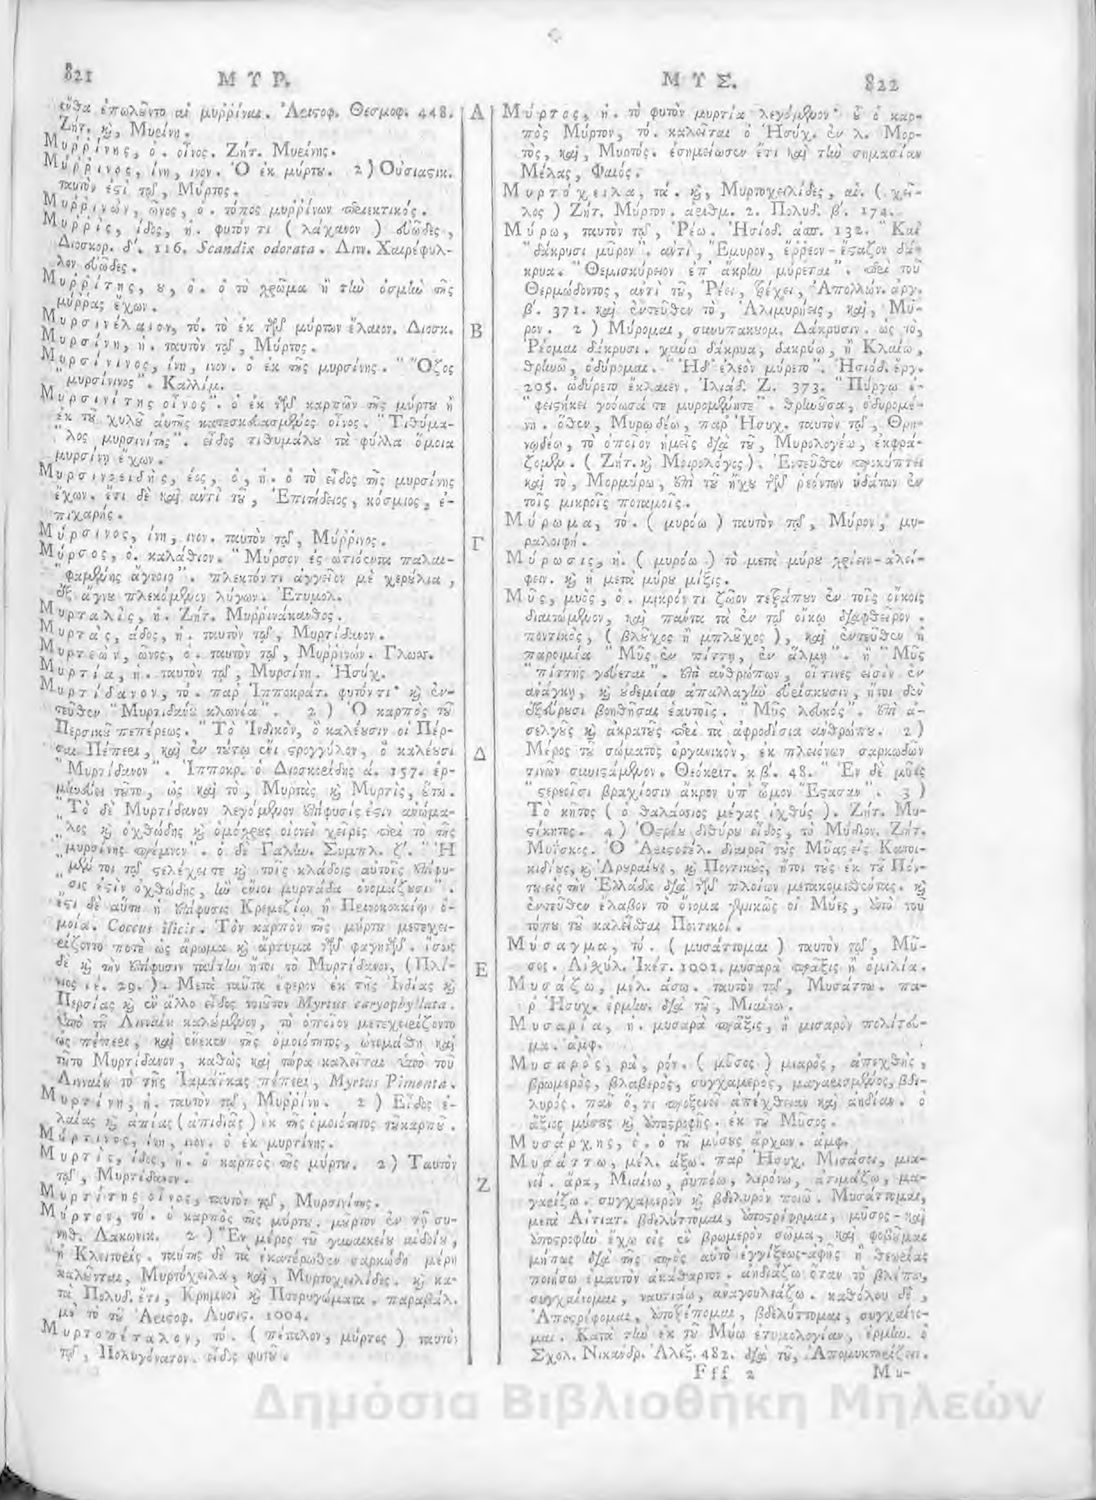 821
ΜΥΡ.
ἔνθα ἐπωλοῦντο αἱ μυῤῥίναι. Ἀριστοφ. Θεσμοφ. 448.
Ζήτ. καὶ, Μυρίνη.
Μυῤῥίνης, ὁ. οἶνος. Ζήτ. Μυρίνης.
Μύῤῥινος, ίνη, ινον. Ὁ ἐκ μύρτου. 2) Οὐσιαστικ.
ταυτόν ἐστι τῷ, Μύρτος.
Μυῤῥινών, ῶνος, ὁ. τόπος μυῤῥίνων περιεκτικός.
Μυῤῥίς, ίδος, ἡ. φυτόν τι (λάχανον) εὐῶδες,
Διοσκορ. δ΄. 116. Scandix odorata. Λινν. Χαιρέφυλ-
λον εὐῶδες.
Μυῤῥίτης, ου, ὁ. ὁ τὸ χρῶμα ἢ τὴν ὀσμὴν τῆς
μύῤῥας ἔχων.
Μυρσινέλαιον, τό. τὸ ἐκ τῶν μύρτων ἔλαιον. Διοσκ.
Μυρσίνη, ἡ. ταυτὸν τῷ, Μύρτος.
Μυρσίνινος, ίνη, ινον. ὁ ἐκ τῆς μυρσίνης. "Ὄζος
μυρσίνινος". Καλλίμ.
Μυρσινίτης οἶνος". ὁ ἐκ τῶν καρπῶν τῆς μύρτου ἢ
ἐκ τοῦ χυλοῦ αὐτῆς κατεσκευασμένος οἶνος. "Τιθύμα-
"λος μυρσινίτης". εἶδος τιθυμάλου τὰ φύλλα ὅμοια
μυρσίνῃ ἔχων.
Μυρσινοειδής, έος, ὁ, ἡ. ὁ τὸ εἶδος τῆς μυρσίνης
ἔχων. ἔτι δὲ καὶ ἀντὶ τοῦ, Ἐπιτήδειος, κόσμιος, ἐ-
πιχαρής.
Μύρσινος, ίνη, ινον. ταυτὸν τῷ, Μύῤῥινος.
Μύρσος, ὁ. καλάθιον. "Μύρσον ἐς ὠτόεντα παλαι-
"φαμένης ἄγνοιο". πλεκτόν τι ἀγγεῖον μὲ χερύλια,
ἐξ ἄγνου πλεκόμενον λύγων. Ἐτυμολ.
Μυρταλίς, ἡ. Ζήτ. Μυῤῥινάκανθος.
Μυρτάς, άδος, ἡ. ταυτὸν τῷ, Μυρτίδανον.
Μυρτεών, ῶνος, ὁ. ταυτὸν τῷ, Μυῤῥινών. Γλωσσ.
Μυρτία, ἡ. ταυτὸν τῷ, Μυρσίνη. Ἡσύχ.
Μυρτίδανον, τό. παρ' Ἱπποκράτ. φυτόν τι· καὶ ἐν-
τεῦθεν "Μυρτιδανοῦ κλωνία". 2) Ὁ καρπὸς τοῦ
Περσικοῦ πεπέρεως. "Τὸ Ἰνδικὸν, ὃ καλέουσιν οἱ Πέρ-
σαι Πέπερι, καὶ ἐν τούτῳ ἔνι στρογγύλον, ὃ καλέουσι
"Μυρτίδανον". Ἱπποκρ. ὁ Διοσκορίδης ά. 157. ἑρ-
μηνεύει τοῦτο, ὡς καὶ τὸ, Μυρτὰς καὶ Μυρτίς, οὕτω.
"Τὸ δὲ Μυρτίδανον λεγόμενον ἐπίφυσίς ἐστιν ἀνώμα-
"λος καὶ ὀχθώδης καὶ ὁμόχρους οἱονεὶ χεῖρες περὶ τὸ τῆς
"μυρσίνης πρέμνον". ὁ δὲ Γαλην. Συμπλ. ζ΄. "Ἡ
"μέν τοι τῷ στελέχει τε καὶ τοῖς κλάδοις αὐτοῖς ἐπίφυ-
"σις ἐστὶν ὀχθώδης, ἣν ἔνιοι μυρτάδα ὀνομάζουσι".
ἔστι δὲ αὕτη ἡ ἐπίφυσις Κρεμεζίῳ ἢ Πρινοκοκκίῳ ὁ-
μοία. Coccus ilicis. Τὸν καρπὸν τῆς μύρτου μετεχει-
ρίζοντο ποτὲ ὡς ἄρωμα καὶ ἄρτυμα τῶν φαγητῶν. ἴσως
δὲ καὶ τὴν ἐπίφυσιν ταύτην ἤτοι τὸ Μυρτίδανον, (Πλί-
νιος ιέ. 29.). Μετὰ ταῦτα ἔφερον ἐκ τῆς Ἰνδίας καὶ
Περσίας καὶ ἓν ἄλλο εἶδος τοιοῦτον Myrtus caryophyllata.
ὑπὸ τοῦ Λινναίου καλούμενον, τὸ ὁποῖον μετεχειρίζοντο
ὡς πέπερι, καὶ ἕνεκεν τῆς ὁμοιότητος, ὠνομάσθη καὶ
τοῦτο Μυρτίδανον, καθὼς καὶ τώρα καλεῖται ὑπὸ τοῦ
Λινναίου τὸ τῆς Ἰαμαΐκας πέπερι, Myrtus Pimenta.
Μυρτίνη, ἡ. ταυτὸν τῷ, Μυῤῥίνη. 2) Εἶδος ἐ-
λαίας καὶ ἀπίας (ἀπιδίας) ἐκ τῆς ὁμοιότητος τοῦ καρποῦ.
Μύρτινος, ίνη, ινον. ὁ ἐκ μυρτίνης.
Μυρτίς, ίδος, ἡ. ὁ καρπὸς τῆς μύρτου. 2) Ταυτὸν
τῷ, Μυρτίδανον.
Μυρτίτης οἶνος, ταυτὸν τῷ, Μυρσινίτης.
Μύρτον, τό. ὁ καρπὸς τῆς μύρτου. μύρτον ἐν τῇ συ-
νηθ. Λακωνικ. 2) Ἓν μέρος τοῦ γυναικείου αἰδοίου,
ἡ Κλειτορίς. ταύτης δὲ τὰ ἑκατέρωθεν σαρκώδη μέρη
καλοῦνται, Μυρτόχειλα, καὶ, Μυρτοχειλίδες. καὶ κα-
τὰ Πολυδ. ἔτι, Κρημνοὶ καὶ Πτερυγώματα. παράβαλ.
μὲ τὸ τοῦ Ἀριστοφ. Λυσις. 1004.
Μυρτοπέταλον, τό. (πέταλον, μύρτος) ταυτὸν
τῷ, Πολυγόνατον. εἶδος φυτοῦ.
Α
Β
Γ
Δ
Ε
Ζ
ΜΥΣ.
822
Μύρτος, ἡ. τὸ φυτὸν μυρτία λεγόμενον· οὗ ὁ καρ-
πὸς Μύρτον, τό. καλεῖται ὁ Ἡσύχ. ἐν λ. Μορ-
τὸς, καὶ, Μυρτός. ἐσημείωσεν ἔτι καὶ τὴν σημασίαν
Μέλας, Φαιός.
Μυρτόχειλα, τά. καὶ, Μυρτοχειλίδες, αἱ. (χεῖ-
λος) Ζήτ. Μύρτον. ἀριθμ. 2. Πολυδ. β΄. 174.
Μύρω, ταυτὸν τῷ, Ῥέω. Ἡσίοδ. ἀσπ. 132. "Καὶ
"δάκρυσι μῦρον". ἀντὶ, Ἔμυρον, ἔῤῥεον - ἔσταζον δά-
κρυα. "Θεμισκύρειον ἐπ' ἄκρην μύρεται". περὶ τοῦ
Θερμώδοντος, ἀντὶ τοῦ, Ῥέει, τρέχει, Ἀπολλών. ἀργ.
β΄. 371. καὶ ἐντεῦθεν τὸ, Ἁλιμυρήεις, καὶ, Μύ-
ρον. 2) Μύρομαι, συνυπακουομ. Δάκρυσιν. ὡς τὸ,
Ῥέομαι δάκρυσι. χύνω δάκρυα, δακρύω, ἢ Κλαίω,
θρηνῶ, ὀδύρομαι. "Ἡ δ' ἐλεὸν μύρετο". Ἡσιόδ. ἔργ.
205. ὠδύρετο ἔκλαιεν. Ἰλιάδ. Ζ. 373. "Πύργῳ ἐ-
"φεστήκει γοόωσά τε μυρομένη τε". θρηνοῦσα, ὀδυρομέ-
νη. ὅθεν, Μυρωδέω, παρ' Ἡσυχ. ταυτὸν τῷ, Θρη-
νῳδέω, τὸ ὁποῖον ἡμεῖς διὰ τοῦ, Μυρολογέω, ἐκφρά-
ζομεν. (Ζήτ. καὶ Μοιρολόγος). Ἐντεῦθεν προκύπτει
καὶ τὸ, Μορμύρω, ἐπὶ τοῦ ἤχου τῶν ῥεόντων ὑδάτων ἐν
τοῖς μικροῖς ποταμοῖς.
Μύρωμα, τό. (μυρόω) ταυτὸν τῷ, Μύρον, μυ-
ραλοιφή.
Μύρωσις, ἡ. (μυρόω) τὸ μετὰ μύρου χρίειν - ἀλεί-
φειν. καὶ ἡ μετὰ μύρου μίξις.
Μῦς, μυὸς, ὁ. μικρόν τι ζῶον τετράπουν ἐν τοῖς οἴκοις
διαιτώμενον, καὶ πάντα τὰ ἐν τῷ οἴκῳ διαφθεῖρον.
ποντικὸς, (βλοῦχος ἢ μπλοῦχος), καὶ ἐντεῦθεν ἡ
παροιμία "Μῦς ἐν πίττῃ, ἐν ἅλμῃ". ἢ "Μῦς
"πίττης γεύεται". ἐπὶ ἀνθρώπων, οἵ τινες εἰσὶν ἐν
ἀνάγκῃ, καὶ οὐδεμίαν ἀπαλλαγὴν εὑρίσκουσιν, ἤτοι δὲν
ἐξεύρουσι βοηθῆσαι ἑαυτοῖς. "Μῦς λευκός". ἐπὶ ἀ-
σελγοῦς καὶ ἀκρατοῦς περὶ τὰ ἀφροδίσια ἀνθρώπου. 2)
Μέρος τοῦ σώματος ὀργανικὸν, ἐκ πλειόνων σαρκωδῶν
τινῶν συνιστάμενον. Θεόκριτ. κβ΄. 48. "Ἐν δὲ μύες
"στερεοῖσι βραχίοσιν ἄκρον ὑπ' ὦμον Ἔστασαν". 3)
Τὸ κῆτος (ὁ θαλάσσιος μέγας ἰχθύς). Ζήτ. Μυ-
στίκητος. 4) Ὀστρέου διθύρου εἶδος, τὸ Μύδιον. Ζήτ.
Μυΐσκος. Ὁ Ἀριστοτέλ. διαιρεῖ τοὺς Μύας εἰς Κατοι-
κιδίους, καὶ Ἀρουραίους, καὶ Ποντικοὺς, ἤτοι τοὺς ἐκ τοῦ Πόν-
του εἰς τὴν Ἑλλάδα διὰ τῶν πλοίων μετακομισθέντας. καὶ
ἐντεῦθεν ἔλαβον τὸ ὄνομα γενικῶς οἱ Μύες, ὑπὸ τοῦ
τόπου τοῦ καλεῖσθαι Ποντικοί.
Μύσαγμα, τό. (μυσάττομαι) ταυτὸν τῷ, Μῦ-
σος. Αἰσχύλ. Ἱκέτ. 1002. μυσαρὰ πρᾶξις ἢ ὁμιλία.
Μυσάζω, μέλ. άσω. ταυτὸν τῷ, Μυσάττω. πα-
ρ' Ἡσυχ. ἑρμην. διὰ τοῦ, Μιαίνω.
Μυσαρία, ἡ. μυσαρὰ πρᾶξις, ἢ μισαρὸν πολίτευ-
μα. ἀμφ.
Μυσαρὸς, ρὰ, ρόν. (μῦσος) μιαρὸς, ἀπεχθὴς,
βρωμερὸς, βλαβερὸς, συγχαμερὸς, μαγαρισμένος, βδε-
λυρός. πᾶν ὅ, τι προξενεῖ ἀπέχθειαν καὶ ἀηδίαν. ὁ
ἄξιος μίσους καὶ ἀποστροφῆς. ἐκ τοῦ Μῦσος.
Μυσάρχης, ὁ. ὁ τοῦ μύσους ἄρχων. ἀμφ.
Μυσάττω, μέλ. άξω. παρ' Ἡσυχ. Μισάσει, μια-
νεῖ. ἄρα, Μιαίνω, ῥυπόω, λερόνω, ἀτιμάζω, μα-
γαρίζω. συγχαμερὸν καὶ βδελυρὸν ποιῶ. Μυσάττομαι,
μετὰ Αἰτιατ. βδελύττομαι, ἀποστρέφομαι, μῦσος - καὶ
ἀποστροφὴν ἔχω εἰς ἓν βρωμερὸν σῶμα, καὶ φοβοῦμαι
μήπως διὰ τῆς πρὸς αὐτὸ ἐγγίξεως - ἀφῆς ἢ θεωρίας
ποιήσω ἐμαυτὸν ἀκάθαρτον. ἀηδιάζω ὅταν τὸ βλέπω,
συγχαίνομαι, ναυτιάω, ἀναγουλιάζω. καθόλου δὲ,
Ἀποστρέφομαι, ἀποτρέπομαι, βδελύττομαι, συγχαίνο-
μαι. Κατὰ τὴν ἐκ τοῦ Μύω ἐτυμολογίαν, ἑρμην. ὁ
Σχολ. Νικανδρ. Ἀλεξ. 482. διὰ τοῦ, Ἀπομυκτηρίζει.
Fff 2
Μυ-
Δημόσια Βιβλιοθήκη Μηλεών